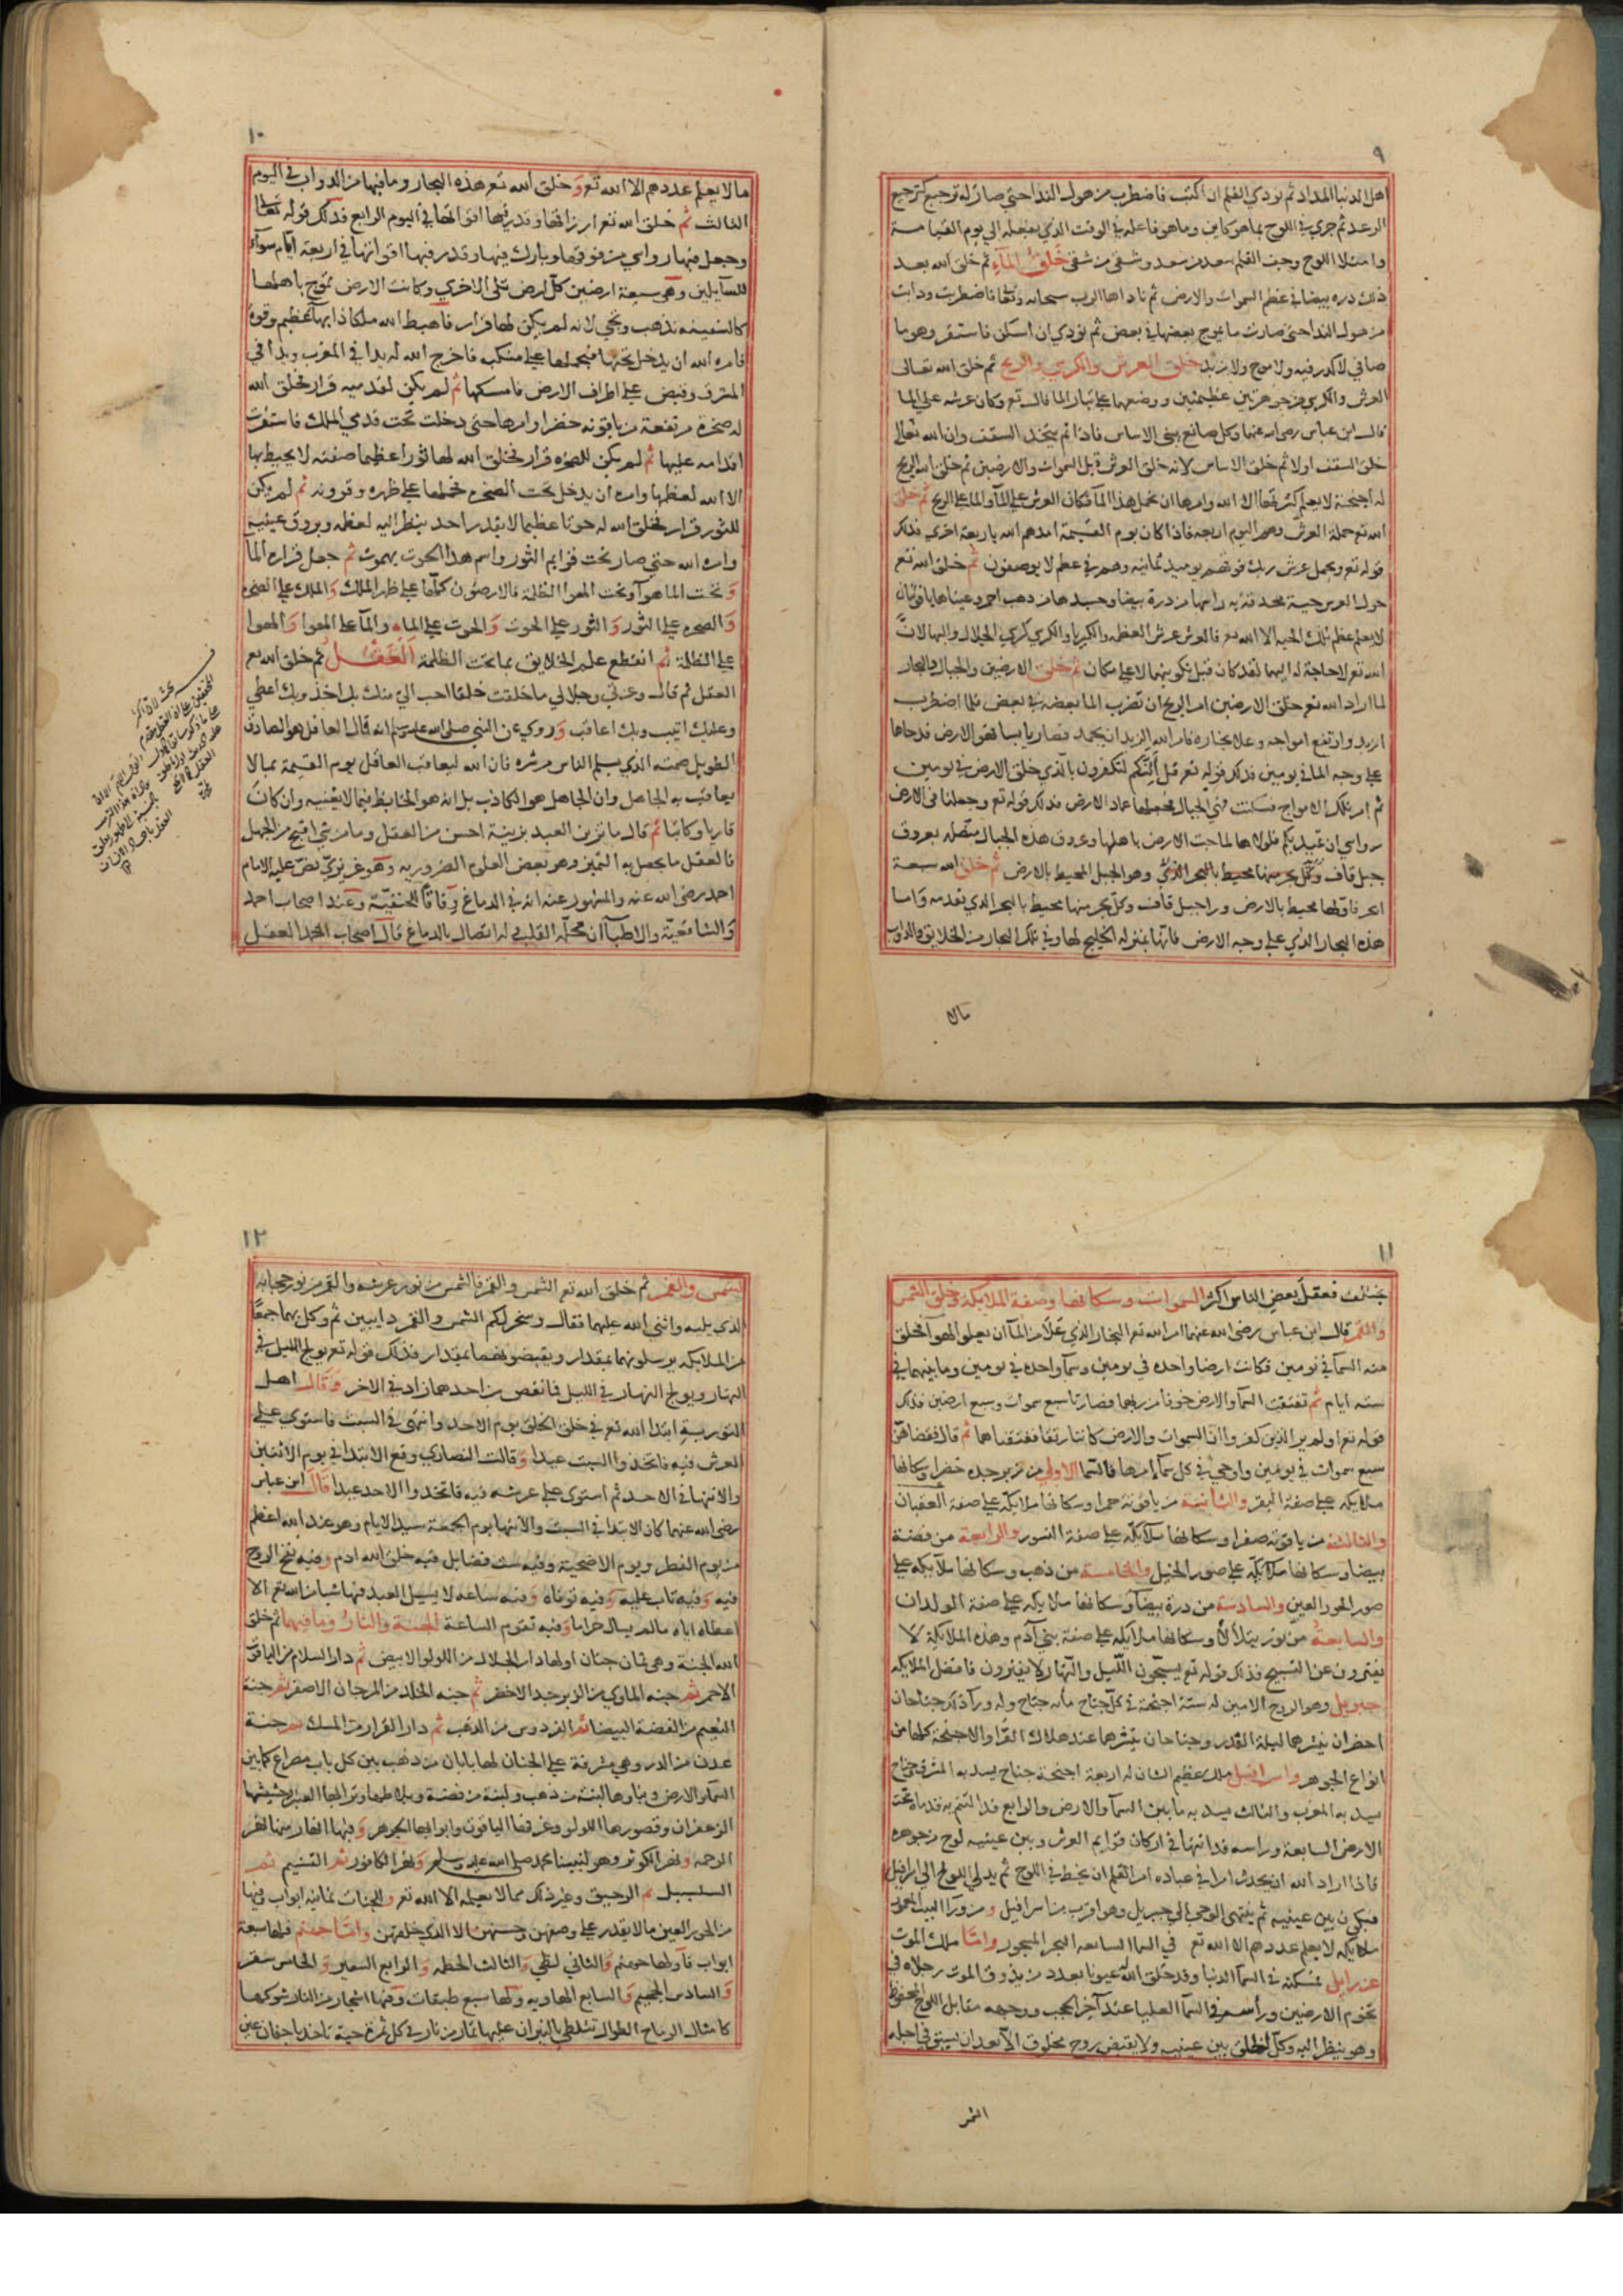 ٩
اهل الدنيا المداد ثم نودي القلم ان اكتب فاضطرب من هول الندا حتى صار له ترجيع كترجيع
الرعد ثم جرى في اللوح بما هو كاين وما هو فاعله في الوقت الذي يفعله الى يوم القيامة
وامتلا اللوح وجف القلم سعد من سعد وشقى من شقى خلق الماء ثم خلق الله بعد
ذلك دره بيضا في عظم السموات والارض ثم ناداها الرب سبحانه وتعالى فاضطربت وذابت
من هول الندا حتى صارت ما يموج بعضها في بعض ثم نودي ان اسكن فاستقر وهو ما
صافي لا كدر فيه ولا موج ولا زبد خلق العرش والكرسي والريح ثم خلق الله تعالى
العرش والكرسي من جوهرتين عظيمتين ووضعها على تيار الما قال تع وكان عرشه على الما
قال ابن عباس رضى الله عنهما وكل صانع يبنى الاساس فاذا تم يتخذ السقف وان الله تعالى
خلق السقف اولا ثم خلق الاساس لانه خلق العرش قبل السموات والارضين ثم خلق الله الريح
له اجنحة لا يعلم كثرتها الا الله وامرها ان تحمل هذا الما فكان العرش على المآ والما على الريح ثم خلق
الله تع حملة العرش وهم اليوم اربعه فاذا كان يوم القيمة امدهم الله باربعة اخرى فذلك
قوله تع ويحمل عرش ربك فوقهم يوميذ ثمانيه وهم في عظم لا يوصفون ثم خلق الله تع
حول العرش حية محدقة به راسها من درة بيضا وجسدها من ذهب احمر وعيناها ياقوتتان
لا يعلم عظم تلك الحيه الا الله تع فالعرش عرش العظمه والكبريا والكرسي كرسي الجلال والبها لان
الله تع لا حاجة له اليهما لقد كان قبل تكوينهما لا على مكان ثم خلق الارضين والجبال والبحار
لما اراد الله تع خلق الارضين امر الريح ان تضرب الما بعضه في بعض فلما اضطرب
ازبد وارتفع امواجه وعلا بخاره فامر الله الزبد ان يجمد فصار يابسا فهو الارض فدحاها
على وجه الما في يومين فذلك قوله تع قل أئنكم لتكفرون بالذي خلق الارض في يومين
ثم امر تلك الامواج فسكنت فهي الجبال فجعلها عماد الارض فذلك قوله تع وجعلنا في الارض
رواسي ان تميد بكم فلولاها لماجت الارض باهلها وعروق هذه الجبال متصله بعروق
جبل قاف وهو الجبل المحيط بالارض ثم خلق الله سبعة
ابحر فاولها محيط بالارض ورا جبل قاف وكل بحر منها محيط بالبحر الذي تقدمه واما
هذه البحار الذي على وجه الارض فانها بمنزله الخليج لها وفي تلك البحار من الخلايق والدواب
مالا
١٠
ما لا يعلم عددهم الا الله تع وخلق الله تع هذه البحار وما فيها من الدواب في اليوم
الثالث ثم خلق الله تع ارزاقها وقدر فيها اقواتها في اليوم الرابع فذلك قوله تعالى
وجعل فيها رواسي من فوقها وبارك فيها وقدر فيها اقواتها في اربعة ايام سوآء
للسآيلين وهو سبعة ارضين كل ارض تلى الاخرى وكانت الارض تموج باهلها
كالسفينه تذهب وتجى لانه لم يكن لها قرار فاهبط الله ملكا ذا بهآء عظيم وقوة
فامره الله ان يدخل تحتها فيحملها على منكبه فاخرج الله له يدا في المغرب ويدا في
المشرق وقبض على اطراف الارض فامسكها ثم لم يكن لقدميه قرار فخلق الله
له صخرة مرتفعة من ياقوته خضرا وامرها حتى دخلت تحت قدمي الملك فاستقرت
اقدامه عليها ثم لم يكن للصخره قرار فخلق الله لها ثورا عظيما صفته لا يحيط بها
الا الله لعظمها وامره ان يدخل تحت الصخره فحملها على ظهره وقرونه ثم لم يكن
للثور قرار فخلق الله له حوتا عظيما لا يقدر احد ينظر اليه لعظمه وبروق عينيه
وامره الله حتى صار تحت قوايم الثور واسم هذا الحوت بهموت ثم جعل قراره الما
وتحت الما هوآ وتحت الهوا الظلمة فالارضون كلها على ظهر الملك والملك على الصخره
والصخره على الثور والثور على الحوت والحوت على الماء والمآ على الهوا والهوا
على الظلمة ثم انقطع علم الخلايق بما تحت الظلمة العقل ثم خلق الله تع
العقل ثم قال وعزتي وجلالي ما خلقت خلقا احب الي منك بك اخذ وبك اعطي
وعليك اثيب وبك اعاقب وروي عن النبي صلى الله عليه وسلم انه قال العاقل هو الصادق
الطويل صمته الذي يسلم الناس من شره فان الله ليعاقب العاقل يوم القيمة بما لا
يعاقب به الجاهل وان الجاهل هو الكاذب بل انه هو الخابط فيما لا يعنيه وان كان
قاريا وكاتبا ثم قال ما تزين العبد بزينة احسن من العقل وما من شي اقبح من الجهل
فالعقل ما يحصل به التميز وهو بعض العلوم الضروريه وهو غريزي نص عليه الامام
احمد رضى الله عنه والمشهور عنه انه في الدماغ وفاقا للحنفية وعند اصحاب احمد
والشافعية والاطبآ ان محله القلب له اتصال بالدماغ قال اصحاب احمد العقل
١١
يختلف فعقل بعض الناس اكثر السموات وسكانها وصفة الملايكة وخلق الشمس
والقمر قال ابن عباس رضى الله عنهما امر الله تع البخار الذي علا من المآ ان يعلو الهوا فخلق
منه السمآ في يومين فكانت ارضا واحده في يومين وسمآ واحده في يومين وما بينهما في
سته ايام ثم تفتقت السمآ والارض خوفا من ربهما فصارتا سبع سموات وسبع ارضين فذلك
قوله تع اولم ير الذين كفروا ان السموات والارض كانتا رتقا ففتقناهما ثم قال فقضاهن
سبع سموات في يومين واوحى في كل سمآء امرها فالسما الاولى من زبرجده خضرا وسكانها
ملايكه على صفة البقر والثانية من ياقوتة حمرا وسكانها ملايكه على صفة العقبان
والثالثة من ياقوته صفرا وسكانها ملايكه على صفة النسور والرابعة من فضة
بيضا وسكانها ملايكه على صور الخيل والخامسة من ذهب وسكانها ملايكه على
صور الحور العين والسادسة من درة بيضآ وسكانها ملايكه على صفة الولدان
والسابعة من نور يتلألأ وسكانها ملايكه على صفة بني آدم وهذه الملايكة لا
يفترون عن التسبيح فذلك قوله تع يسبحون الليل والنهار لا يفترون فافضل الملايكه
جبريل وهو الروح الامين له ستة اجنحة في كل جناح مايه جناح وله ورآ ذلك جناحان
اخضران ينشرهما ليلة القدر وجناحان ينشرهما عند هلاك القرا والاجنحة كلها من
انواع الجوهر واسرافيل ملك عظيم الشان له اربعة اجنحة جناح يسد به المشرق وجناح
يسد به المغرب والثالث يسد به ما بين السمآ والارض والرابع قد التثم به قدماه تحت
الارض السابعة وراسه قد انتها في اركان قوايم العرش وبين عينيه لوح من جوهره
فاذا اراد الله ان يحدث امرا في عباده امر القلم ان يخط في اللوح ثم يدلى اللوح الى اسرافيل
فيكون بين عينيه ثم ينتهى الوحى الى جبريل وهو اقرب من اسرافيل ومن ورآ البيت المعمور
ملايكه لا يعلم عددهم الا الله تع في السما السابعه البحر المسجور واما ملك الموت
عزرايل مسكنه في السمآ الدنيا وقد خلق الله له عيونا بعدد من يذوق الموت رجلاه في
تخوم الارضين ورأسه في السمآ العليا عند آخر الحجب ووجهه مقابل اللوح المحفوظ
وهو ينظر اليه وكل الخلق بين عينيه ولا يقبض روح مخلوق الا بعد ان يستوفى اجله
الشمس
١٢
الشمس والقمر ثم خلق الله تع الشمس والقمر فالشمس من نور عرشه والقمر من نور حجابه
الذي يليه واثنى الله عليهما فقال وسخر لكم الشمس والقمر دايبين ثم وكل بهما جمعا
من الملايكه يرسلونهما بمقدار ويقبضونهما بمقدار فذلك قوله تع يولج الليل في
النهار ويولج النهار في الليل فما نقص من احدهما زاد في الاخر وقال اهل
التوريه ابتدا الله تع في خلق الخلق يوم الاحد وانتهى في السبت فاستوى على
العرش فيه فاتخذوا السبت عيدا وقالت النصارى وقع الابتدا في يوم الاثنين
والانتها في الاحد ثم استوى على عرشه فيه فاتخذوا الاحد عيدا قال ابن عباس
رضى الله عنهما كان الابتدا في السبت والانتها يوم الجمعة سيد الايام وهو عند الله اعظم
من يوم الفطر ويوم الاضحية وفيه ست فضايل فيه خلق الله ادم وفيه نفخ الروح
فيه وفيه تاب عليه وفيه توفاه وفيه ساعه لا يسيل العبد فيها شيا من الله تع الا
اعطاه اياه مالم يسال حراما وفيه تقوم الساعة الجنة والنار وما فيهما ثم خلق
الله الجنة وهي ثمان جنان اولها دار الجلال من اللولو الابيض ثم دار السلام من الياقوت
الاحمر ثم جنه الماوى من الزبرجد الاخضر ثم جنه الخلد من المرجان الاصفر ثم جنة
النعيم من الفضة البيضا ثم الفردوس من الذهب ثم دار القرار من المسك ثم جنة
عدن من الدر وهي مشرفة على الجنان لها بابان من ذهب بين كل باب مصراع كما بين
السمآ والارض وبناوها لبنة من ذهب ولبنة من فضة وبلاطها وترابها العنبر وحشيشها
الزعفران وقصورها اللولو وغرفها الياقوت وابوابها الجوهر وفيها انهار منها نهر
الرحمه ونهر الكوثر وهو لنبينا محمد صلى الله عليه وسلم ونهر الكافور ثم التسنيم ثم
السلسبيل ثم الرحيق وغير ذلك مما لا يعلمه الا الله تع وللجنات ثمانيه ابواب وفيها
من الحور العين ما لا يقدر على وصفهن وحسنهن الا الذي خلقهن واما جهنم فلها سبعة
ابواب فاولها جهنم والثاني لظى والثالث الحطمه والرابع السعير والخامس سقر
والسادس الجحيم والسابع الهاويه وكلها سبع طبقات وفيها اشجار من النار شوكها
كامثال الرماح الطوال تتلظى بالنيران عليها ثمار من نار في كل ثمرة حية تاخذ باجفان عين